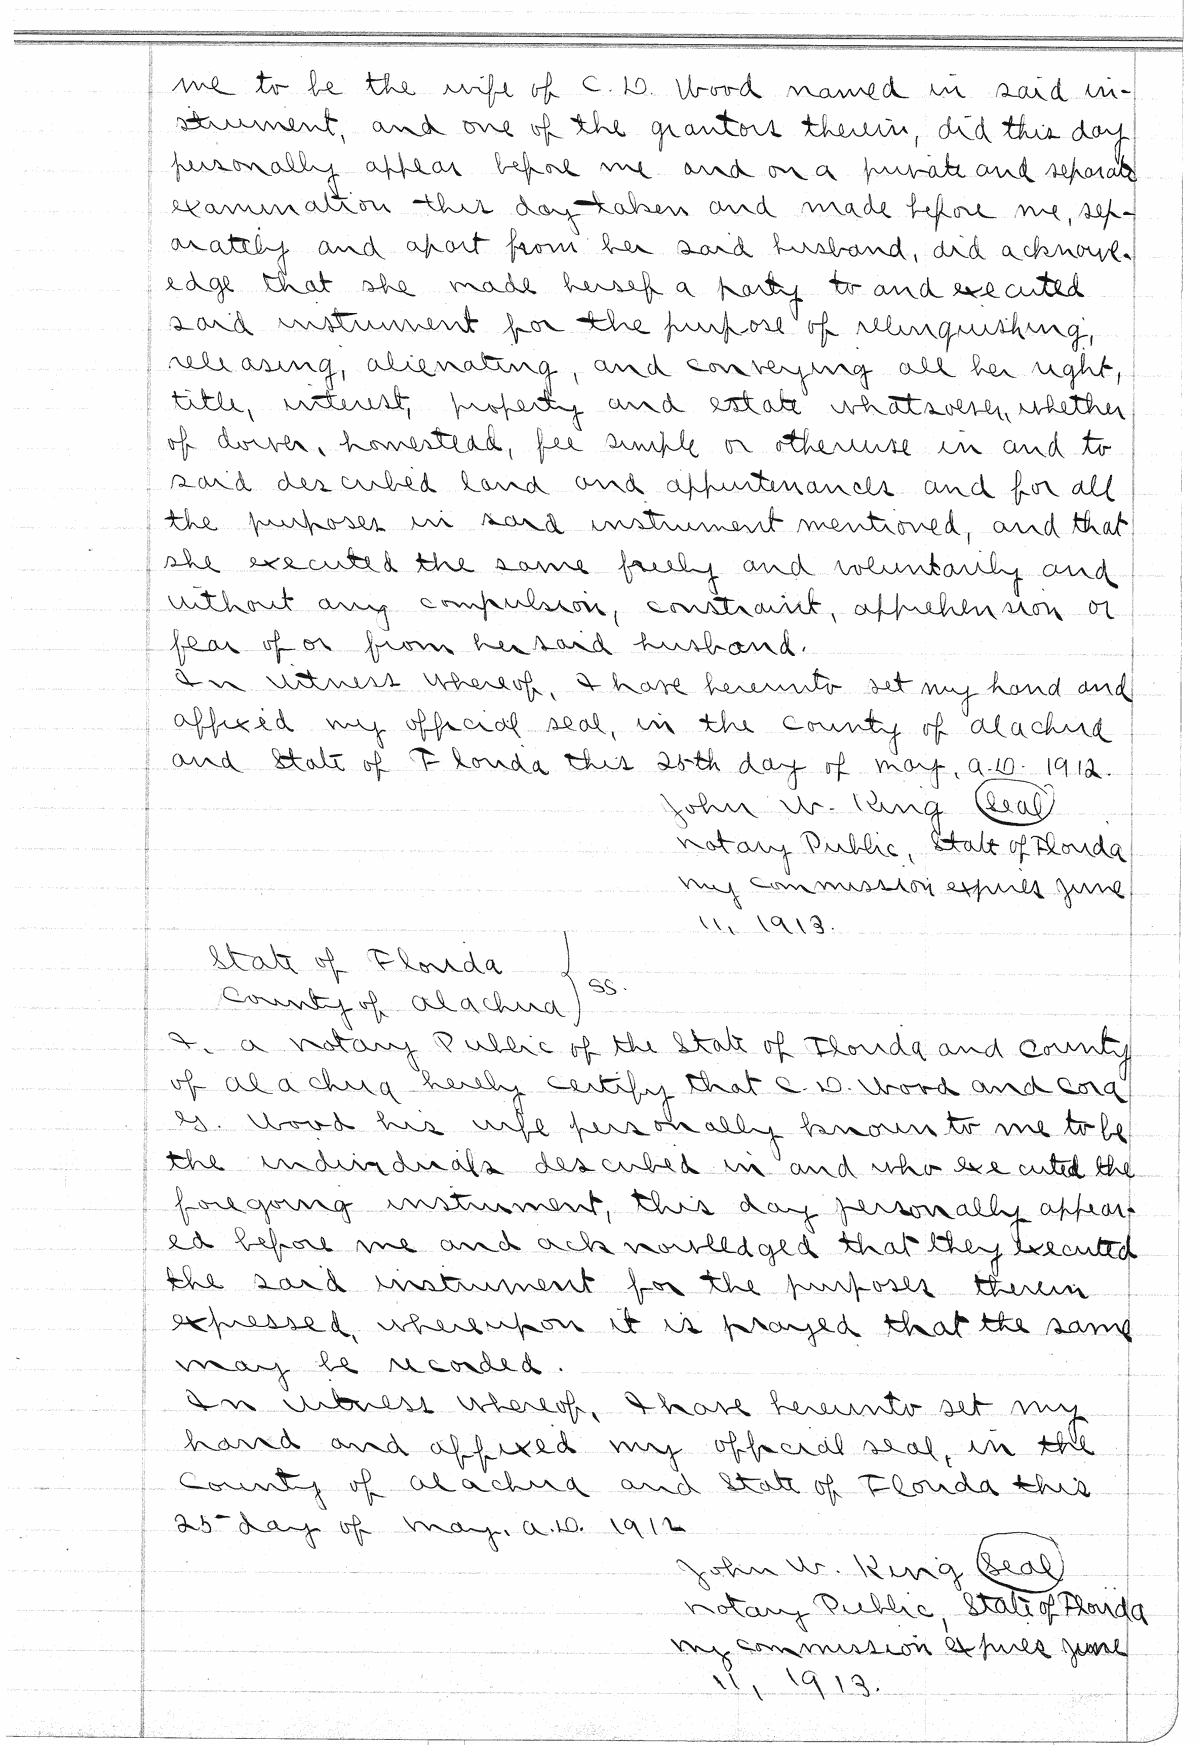 me to be the wife of C. D. Wood named in said in-
strument, and one of the grantors therein, did this day
personally appear before me and on a private and separate
examination this day taken and made before me, sep-
arately and apart from her said husband, did acknowl-
edge that she made herself a party to and executed
said instrument for the purpose of relinquishing,
releasing, alienating, and conveying all her right,
title, interest, property and estate whatsoever, whether
of dower, homestead, fee simple or otherwise in and to
said described land and appurtenances and for all
the purposes in said instrument mentioned, and that
she executed the same freely and voluntarily and
without any compulsion, constraint, apprehension or
fear of or from her said husband.
In witness whereof, I have hereunto set my hand and
affixed my official seal, in the County of Alachua
and State of Florida this 25th day of May, A.D. 1912.
John W. King (Seal)
Notary Public, State of Florida
My commission expires June
11, 1913.
State of Florida
County of Alachua } SS.
I, a Notary Public of the State of Florida and County
of Alachua hereby certify that C. D. Wood and Cora
G. Wood his wife personally known to me to be
the individuals described in and who executed the
foregoing instrument, this day personally appear-
ed before me and acknowledged that they executed
the said instrument for the purposes therein
expressed, whereupon it is prayed that the same
may be recorded.
In witness whereof, I have hereunto set my
hand and affixed my official seal, in the
County of Alachua and State of Florida this
25 day of May, A.D. 1912
John W. King (Seal)
Notary Public, State of Florida
My commission expires June
11, 1913.